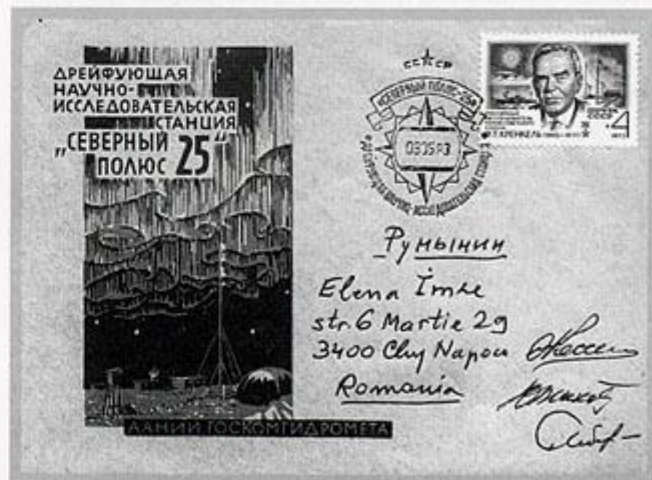 ДРЕЙФУЮЩАЯ
НАУЧНО-
ИССЛЕДОВАТЕЛЬСКАЯ
СТАНЦИЯ
„СЕВЕРНЫЙ
ПОЛЮС 25"
ААНИИ ГОСКОМГИДРОМЕТА
СССР
«СЕВЕРНЫЙ ПОЛЮС-25»
СССР
4
Э.Т. КРЕНКЕЛЬ
Румынии
Elena Imre
str. 6 Martie 29
3400 Cluj Napoca
Romania